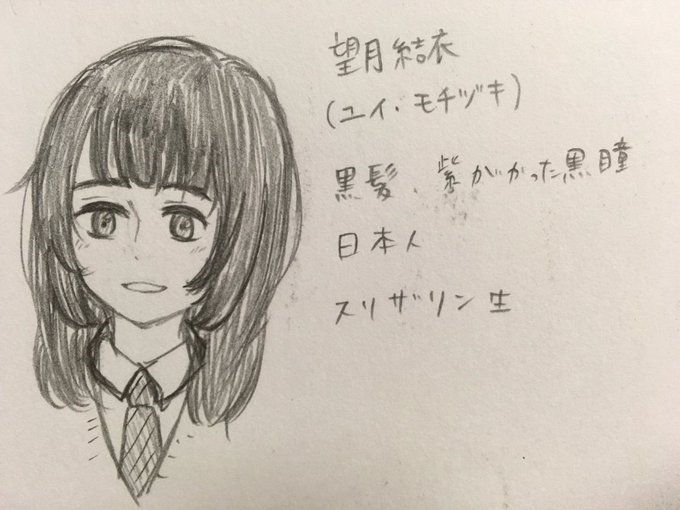 望月結衣
(ユイ・モチヅキ)
黒髪、紫がかった黒瞳
日本人
スリザリン生